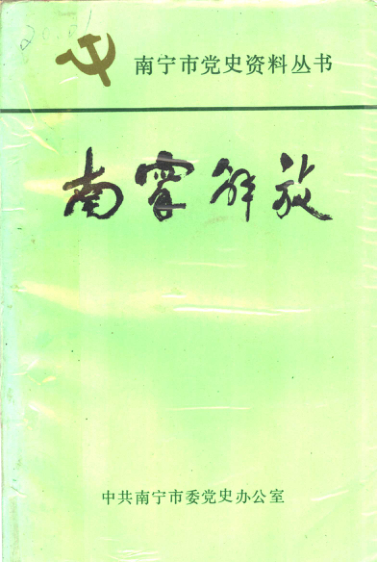 南宁市党史资料丛书
南寧解放
中共南宁市委党史办公室